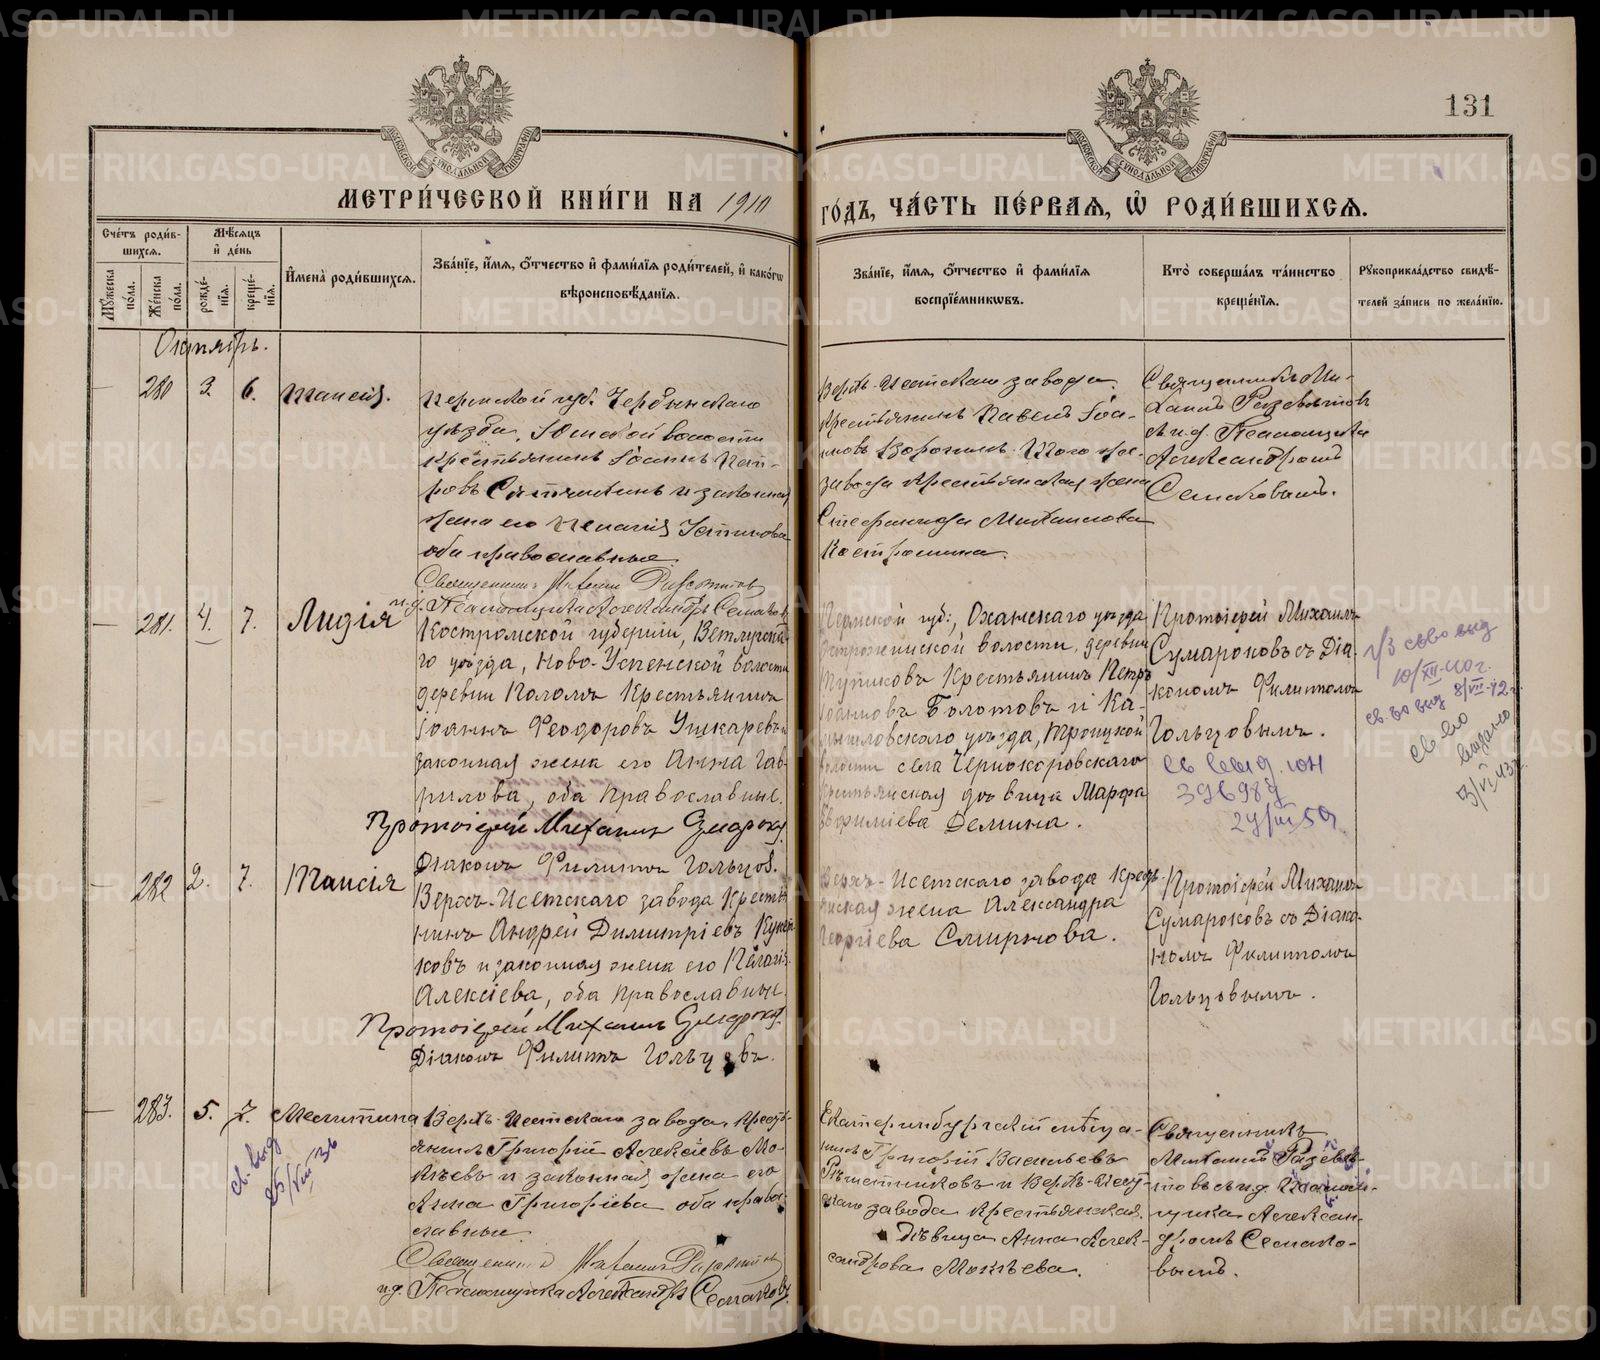 131
МЕТРИ́ЧЕСКОЙ КНИ́ГИ НА 1910 ГО́ДЪ, ЧА́СТЬ ПЕ́РВАЯ, Ѡ РОДИ́ВШИХСЯ.
Сче́тъ роди́вшихся.
Му́жеска по́ла.
Же́нска по́ла.
Мѣ́сяцъ и́ де́нь
рожде́нїя.
креще́нїя.
И҆мена̀ роди́вшихся.
Зва́нїе, и҆́мя, ѻ҆́тчество и҆ фами́лїя роди́телей, и҆ како́гѡ вѣроисповѣ́данїя.
Зва́нїе, и҆́мя, ѻ҆́тчество и҆ фами́лїя воспрїе́мниковъ.
Кто̀ соверша́лъ та́инство креще́нїя.
Рꙋкоприкла́дство свидѣ́телей за́писи по жела́нїю.
Октябрь.
280 3. 6. Таисія.
Пермской губ. Чердынскаго
уѣзда, волости
крестьянинъ Іоаннъ Пет-
ровъ и законная
жена его Пелагія Устинова
оба православные
Священникъ Михаилъ
и.д. Псаломщика Александръ Семаковъ
Верхъ-Исетскаго завода
крестьянинъ Павелъ Іоан-
новъ Воронинъ. Того же
завода крестьянская жена
Стефанида Михаилова
Кострошина.
Священникъ Ми-
хаилъ
съ и.д. Псаломщика
Александромъ
Семаковымъ.
281. 4. 7. Лидія
Костромской губерніи, Ветлужска-
го уѣзда, Ново-Успенской волости
деревни Колома Крестьянинъ
Іоаннъ Феодоровъ Ушкаревъ и
законная жена его Анна Гав-
рилова, оба православные.
Протоіерей Михаилъ Сумароковъ.
Діаконъ Филиппъ Гольцовъ.
Пермской губ., Оханскаго уѣзда
Острожинской волости, деревни
Крестьянинъ Петръ
Іоанновъ Болотовъ и Ка-
мышловскаго уѣзда, Троицкой
волости села Чернокоровскаго
крестьянская дѣвица Марфа
Евфиміева Демина.
Протоіерей Михаилъ
Сумароковъ съ Діа-
кономъ Филиппомъ
Гольцовымъ.
св.
396989
24/III 59.
св-во выд
10/XII-40 г.
св-во выд 8/VII-42 г.
св-во
выдано
3/VI 43 г.
282 2. 7. Таисія
Верхъ-Исетскаго завода Крестья-
нинъ Андрей Димитріевъ
ковъ и законная жена его Пелагія
Алексіева, оба православные.
Протоіерей Михаилъ Сумароковъ.
Діаконъ Филиппъ Гольцовъ.
Верхъ-Исетскаго завода Крестья-
нская жена Александра
Георгіева Смирнова.
Протоіерей Михаилъ
Сумароковъ съ Діако-
номъ Филиппомъ
Гольцовымъ.
283. 5. 7. Мелитина
св. выд
25/VIII 36
Верхъ-Исетскаго завода, кресть-
янинъ Григорій Алексіевъ Мо-
кѣевъ и законная жена его
Анна Григоріева оба право-
славные.
Священникъ Михаилъ
и.д. Псаломщика Александръ Семаковъ.
Екатеринбургскій мѣща-
нинъ Григорій Васильевъ
Рѣшетниковъ и Верхъ-Исет-
скаго завода крестьянская
дѣвица Анна Алек-
сандрова Мокѣева.
Священникъ
Михаилъ
съ и.д. Псалом-
щика Алексан-
дромъ Семако-
вымъ.